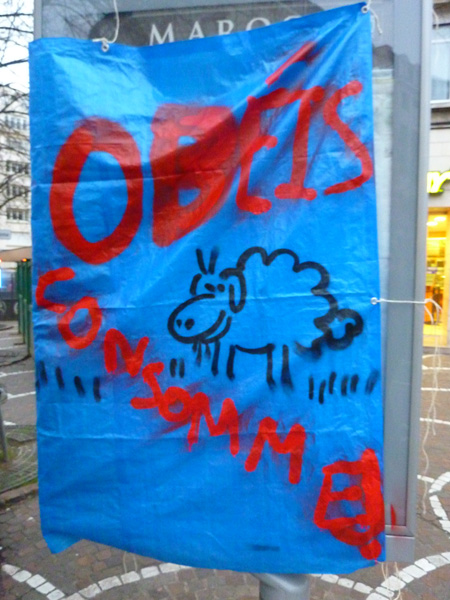 MAROC
OBÉIS
CONSOMME!